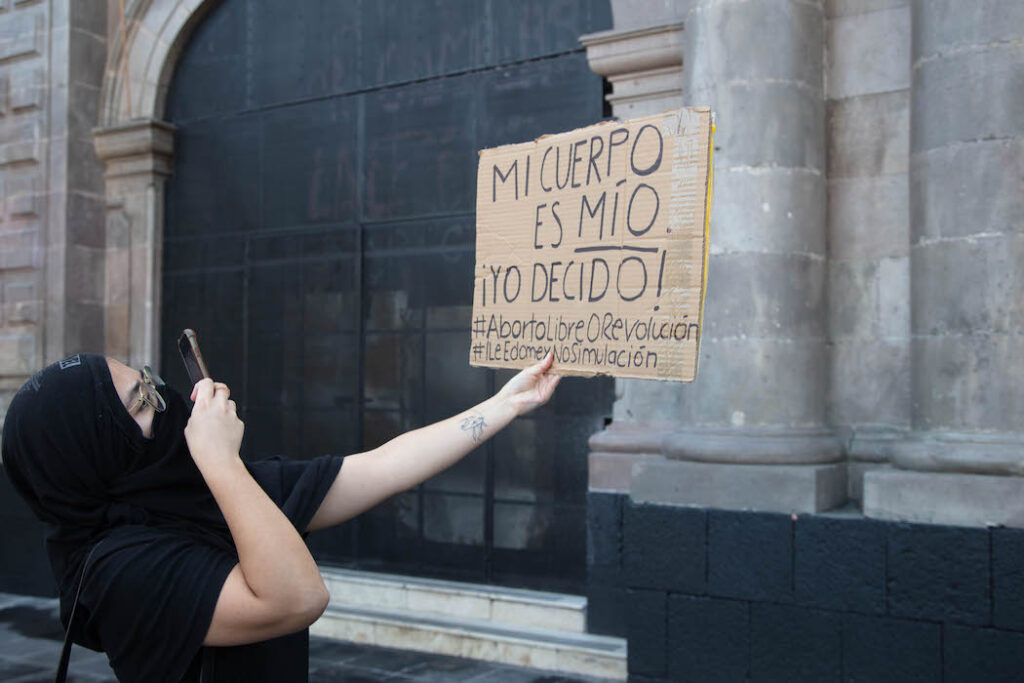 MI CUERPO
ES MÍO.
¡YO DECIDO!
#AbortoLibreORevolución
#ILeEdomexNoSimulación